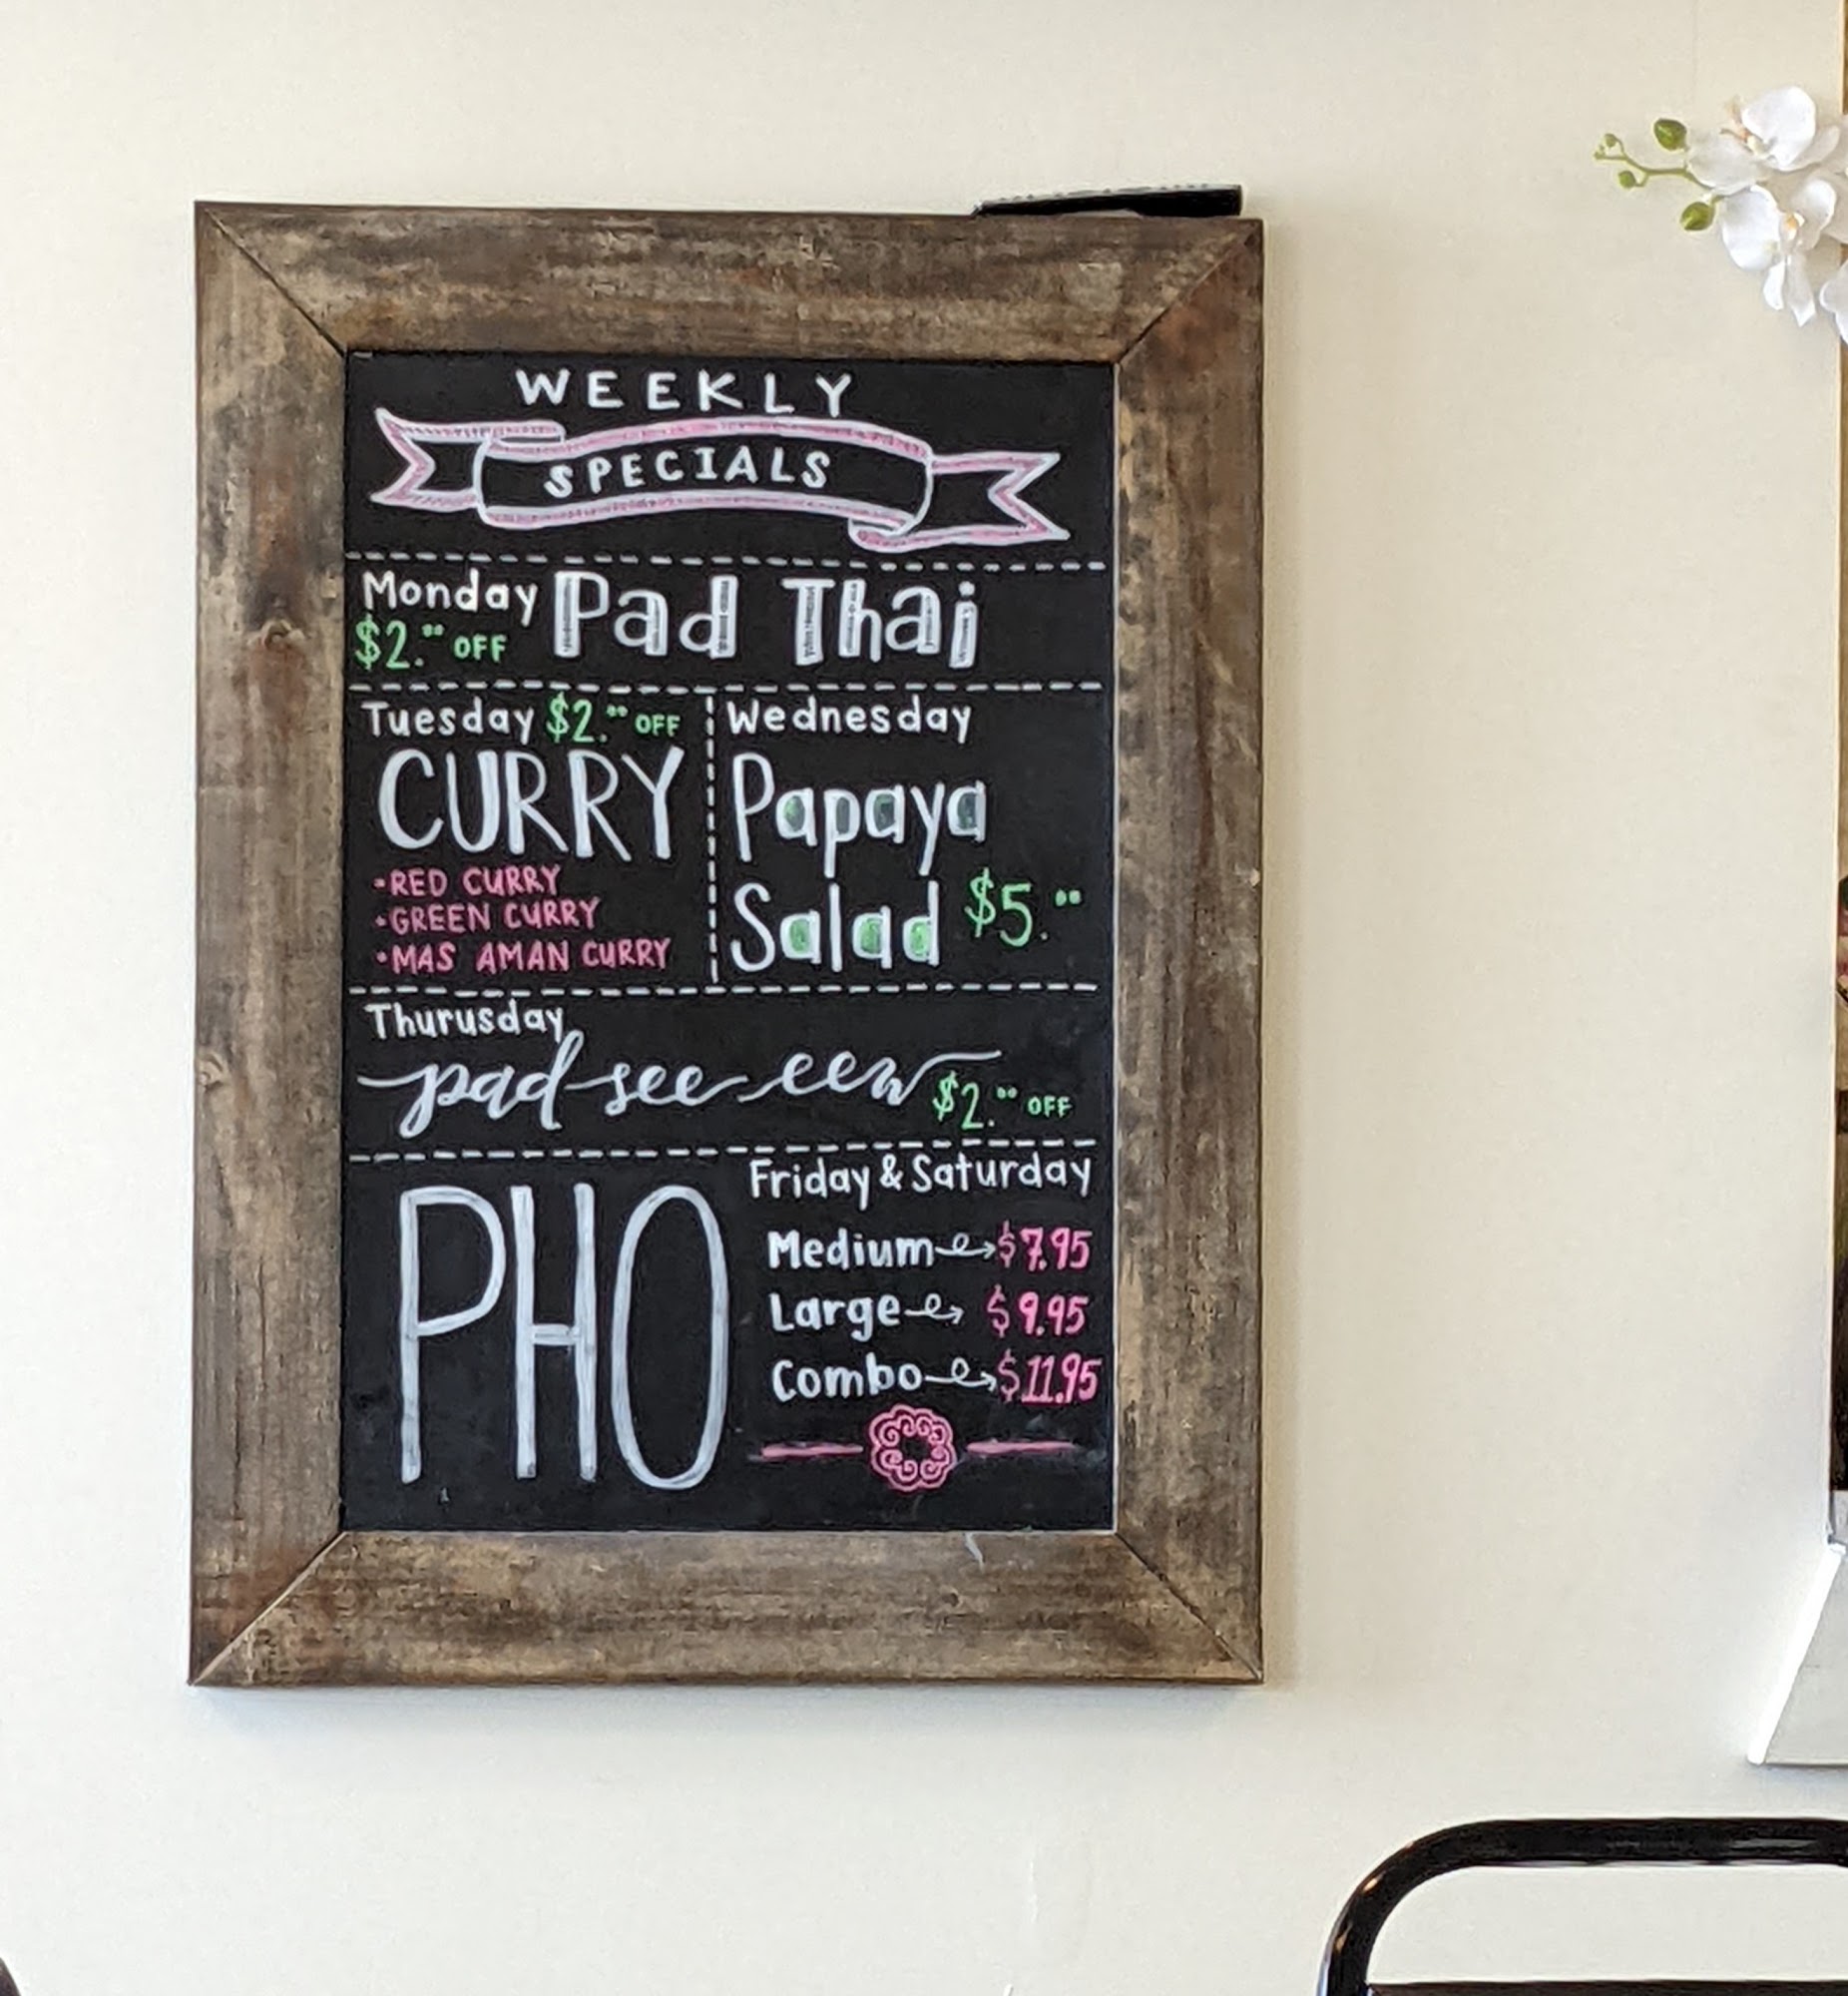 WEEKLY
SPECIALS
Monday
$2.00 OFF
Pad Thai
Tuesday $2.00 OFF
CURRY
•RED CURRY
•GREEN CURRY
•MAS AMAN CURRY
Wednesday
Papaya
Salad $5.00
Thurusday
pad see eew $2.00 OFF
PHO
Friday & Saturday
Medium $7.95
Large $9.95
Combo $11.95